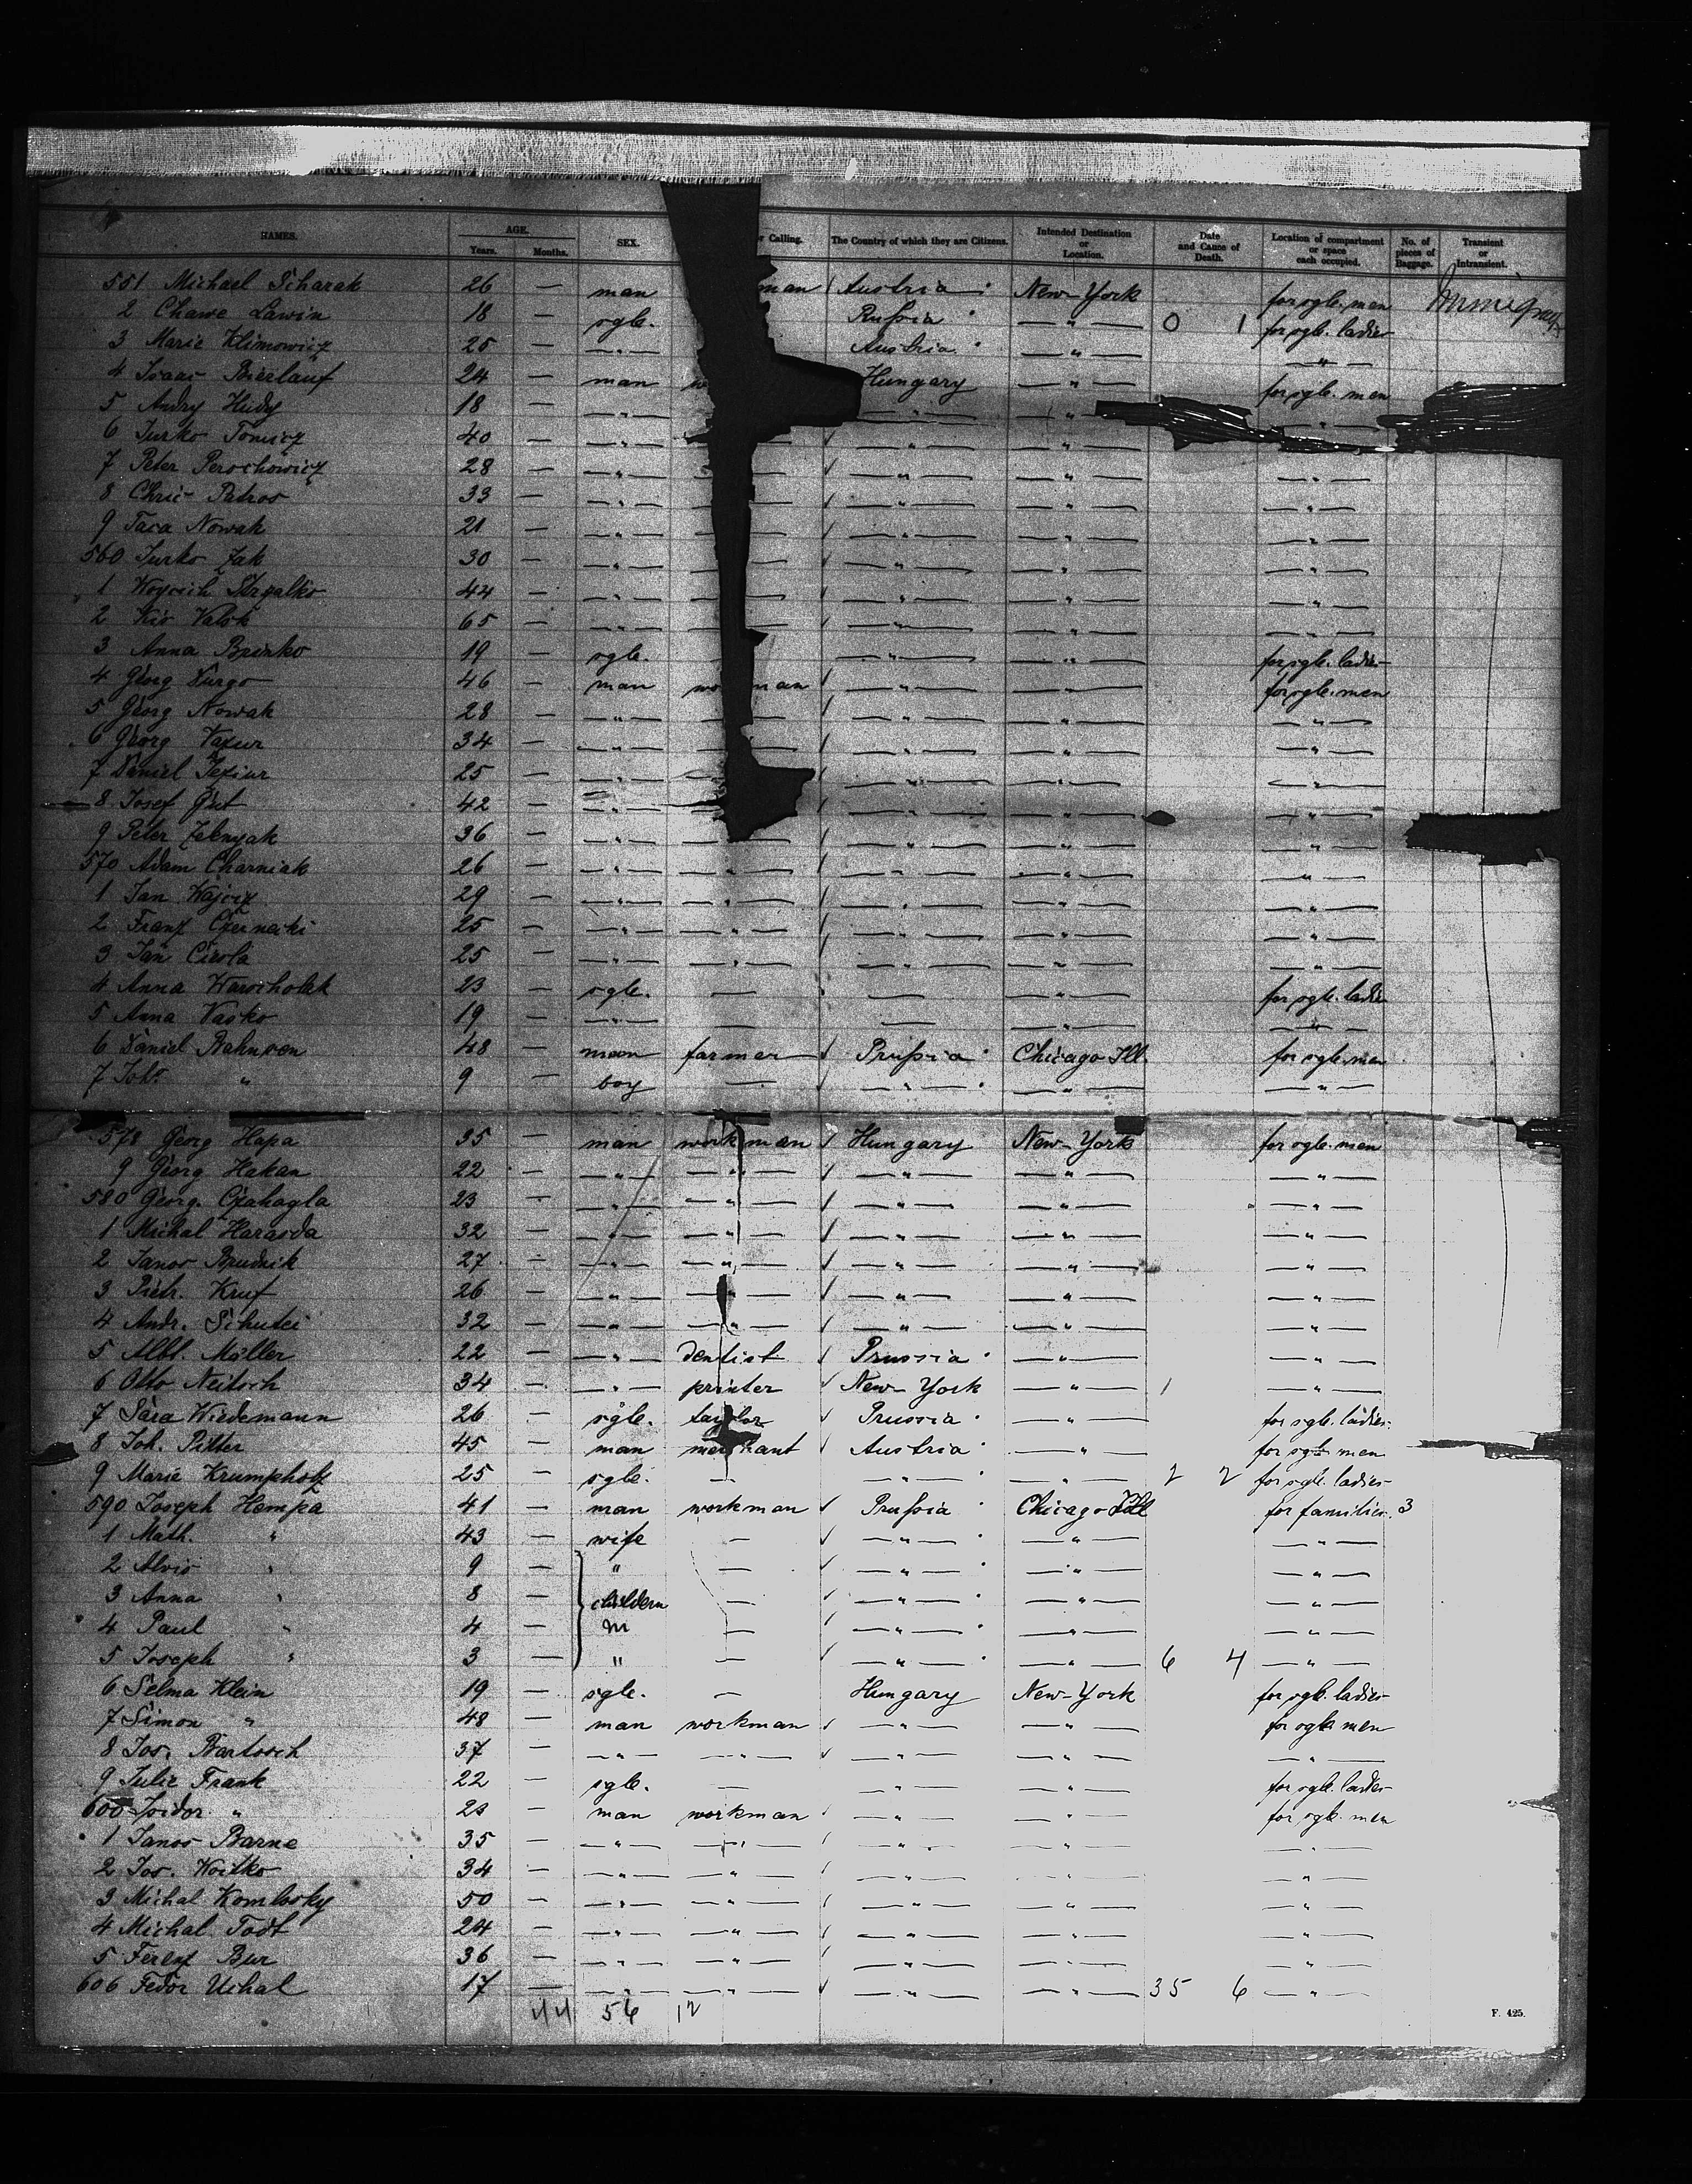 NAMES. AGE. Years. Months. SEX. r Calling. The Country of which they are Citizens. Intended Destination or Location. Date and Cause of Death. Location of compartment or space each occupied. No. of pieces of Baggage. Transient or Intransient.
551 Michael Scharak 26 — man man Austria New-York for sgle. men
2 Chawe Lawin 18 — sgle. Rußia — " — 0 1 for sgle. ladies
3 Marie Klimowicz 25 — — " — Austria — " — — " —
4 Isaac Bierlauf 24 — man Hungary — " — for sgle. men
5 Andry Hudy 18 — — " — — " — — " — — " —
6 Jurko Tomicz 40 — — " — — " — — " —
7 Peter Perochowicz 28 — — " — — " — — " — — " —
8 Chric Patros 33 — — " — — " — — " — — " —
9 Taca Nowak 21 — — " — — " — — " — — " —
560 Jurko Zak 30 — — " — — " — — " — — " —
1 44 — — " — — " — — " — — " —
2 Kis Valok 65 — — " — — " — — " — — " —
3 Anna 19 — sgle. — " — — " — for sgle. ladies
4 Georg Kurgo 46 — man wo man — " — — " — for sgle. men
5 Georg Nowak 28 — — " — — " — — " — — " —
6 Georg 34 — — " — — " — — " — — " —
7 Daniel 25 — — " — — " — — " — — " —
8 Josef Gut 42 — — " — — " — — " — — " —
9 Peter Zelenyak 36 — — " — — " — — " — — " —
570 Adam Charniak 26 — — " — — " — — " — — " — — " —
1 Jan Wajciz 29 — — " — — " — — " — — " — — " —
2 Franz Czernecki 25 — — " — — " — — " — — " — — " —
3 Jan Cirola 25 — — " — — " — — " — — " — — " —
4 Anna Warscholak 23 — sgle. — — — " — for sgle. ladies
5 Anna Vasko 19 — — " — — — — " — — " —
6 Daniel Bahnsen 48 — man farmer Prußia Chicago Ill. for sgle. men
7 Joh. " 9 — boy — — " — — " — — " —
578 Georg Hapa 35 — man workman Hungary New-York for sgle. men
9 Georg Hakan 22 — — " — — " — — " — — " — — " —
580 Georg. Czahagla 23 — — " — — " — — " — — " — — " —
1 Michal Harasda 32 — — " — — " — — " — — " — — " —
2 Janos Brudnik 27 — — " — — " — — " — — " — — " —
3 Pietr. Kruf 26 — — " — — " — — " — — " — — " —
4 Andr. Schutei 32 — — " — — " — — " — — " — — " —
5 Albt. Möller 22 — — " — Dentist Prussia — " — — " —
6 Otto Neitsch 34 — — " — printer New-York — " — 1 — " —
7 Sara Wiedemann 26 — sgle. taylor Prussia — " — for sgle. ladies
8 Joh. Pitter 45 — man merchant Austria — " — for sgle. men
9 Marie Krumpholz 25 — sgle. — — " — — " — 2 2 for sgle. ladies
590 Joseph Hempa 41 — man workman Prußia Chicago Ill for families 3
1 Math. " 43 — wife — — " — — " — — " —
2 Alvis " 9 — " — — " — — " — — " —
3 Anna " 8 — childern — — " — — " — — " —
4 Paul " 4 — m — — " — — " — — " —
5 Joseph " 3 — " — — " — — " — 6 4 — " —
6 Selma Klein 19 — sgle. — Hungary New-York for sgle. ladies
7 Simon " 48 — man workman — " — — " — for sgle men
8 Jos. Bartosch 37 — — " — — " — — " — — " — — " —
9 Julie Frank 22 — sgle. — — " — — " — for sgle. ladies
600 Isidor " 23 — man workman — " — — " — for sgle. men
1 Janos Barne 35 — — " — — " — — " — — " — — " —
2 Jos. Woitko 34 — — " — — " — — " — — " — — " —
3 Michal Komlosky 50 — — " — — " — — " — — " — — " —
4 Michal Todt 24 — — " — — " — — " — — " — — " —
5 Ferenz Bur 36 — — " — — " — — " — — " — — " —
606 Fedor Uchal 17 — — " — — " — — " — — " — 35 6 — " —
44 56 12
F. 425.